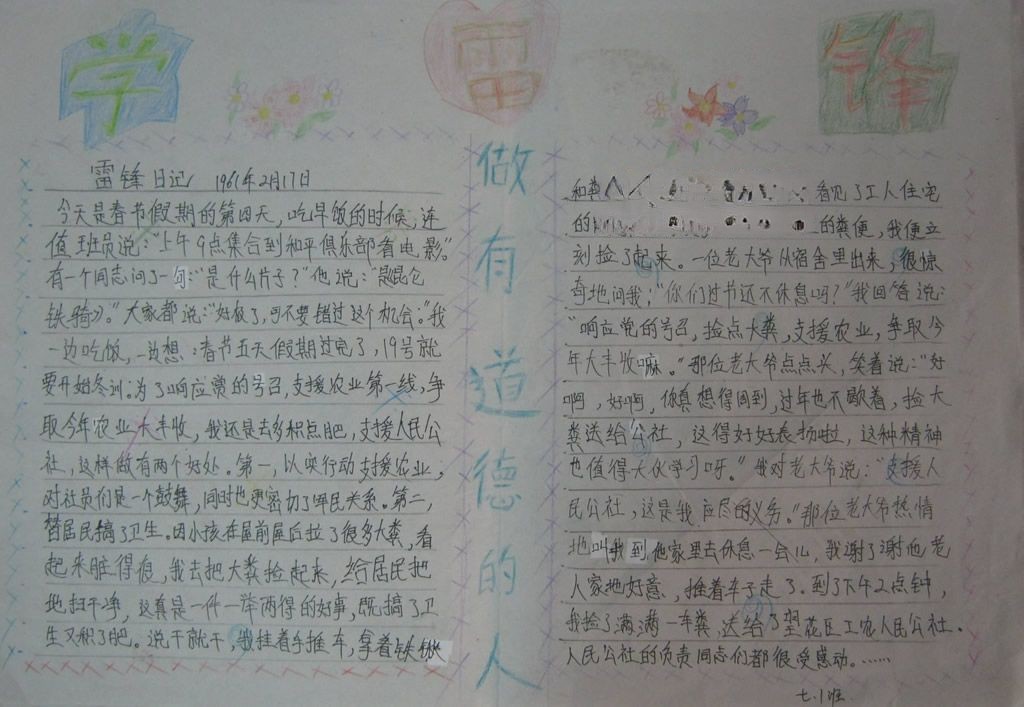 学雷锋
做有道德的人
雷锋日记 1961年2月17日
今天是春节假期的第四天，吃早饭的时候，连
值班员说：“上午9点集合到和平俱乐部看电影”。
有一个同志问了一句：“是什么片子？”他说：“《昆仑
铁骑》。”大家都说：“好极了，可不要错过这个机会。”我
一边吃饭，一边想：春节五天假期过完了，19号就
要开始冬训。为了响应党的号召，支援农业第一线，争
取今年农业大丰收，我还是去多积点肥，支援人民公
社，这样做有两个好处。第一，以实行动支援农业，
对社员们是一个鼓舞，同时也更密切了军民关系。第二，
替居民搞了卫生。因小孩在屋前屋后拉了很多大粪，看
起来脏得很，我去把大粪捡起来，给居民把
地扫干净，这真是一件一举两得的好事，既搞了卫
生又积了肥。说干就干，我推着手推车，拿着铁锹
和粪 看见了工人住宅
的 的粪便，我便立
刻捡了起来。一位老大爷从宿舍里出来，很惊
奇地问我：“你们过节还不休息吗？”我回答说：
“响应党的号召，捡点大粪，支援农业，争取今
年大丰收嘛。”那位老大爷点点头，笑着说：“好
啊，好啊，你真想得周到，过年也不歇着，捡大
粪送给公社，这得好好表扬啦，这种精神
也值得大伙学习呀。”我对老大爷说：“支援人
民公社，这是我应尽的义务。”那位老大爷热情
地叫我到他家里去休息一会儿，我谢了谢他老
人家地好意，推着车子走了。到了下午2点钟，
我捡了满满一车粪，送给了望花区工农人民公社。
人民公社的负责同志们都很受感动。……
七.1班